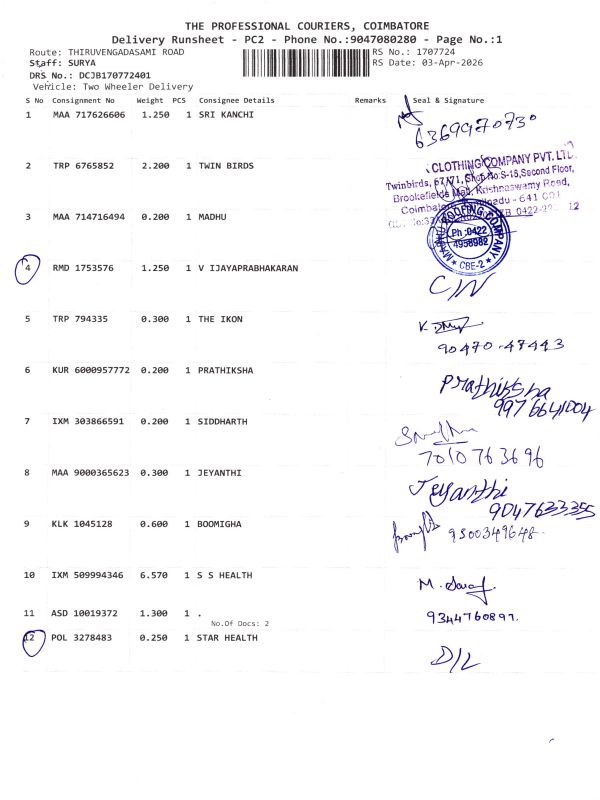 THE PROFESSIONAL COURIERS, COIMBATORE
Delivery Runsheet - PC2 - Phone No.:9047080280 - Page No.:1
Route: THIRUVENGADASAMI ROAD RS No.: 1707724
Staff: SURYA RS Date: 03-Apr-2026
DRS No.: DCJB170772401
Vehicle: Two Wheeler Delivery
S No Consignment No Weight PCS Consignee Details Remarks Seal & Signature
1 MAA 717626606 1.250 1 SRI KANCHI
6369970730
2 TRP 6765852 2.200 1 TWIN BIRDS
CLOTHING COMPANY PVT. LTD.
Twinbirds, 67/71, Shop No:S-15, Second Floor,
Brookefields Mall, Krishnaswamy Road,
Coimbatore, Tamilnadu - 641 001
3 MAA 714716494 0.200 1 MADHU
MADHU ROOFING COMPANY
Ph :0422
4956982
* CBE-2 *
4 RMD 1753576 1.250 1 V IJAYAPRABHAKARAN
C/N
5 TRP 794335 0.300 1 THE IKON
90470-47443
6 KUR 6000957772 0.200 1 PRATHIKSHA
Prathiksha
9976641004
7 IXM 303866591 0.200 1 SIDDHARTH
7010763696
8 MAA 9000365623 0.300 1 JEYANTHI
Jeyanthi
9047633355
9 KLK 1045128 0.600 1 BOOMIGHA
9500349648.
10 IXM 509994346 6.570 1 S S HEALTH
11 ASD 10019372 1.300 1 .
9344760897.
No.Of Docs: 2
12 POL 3278483 0.250 1 STAR HEALTH
D/L